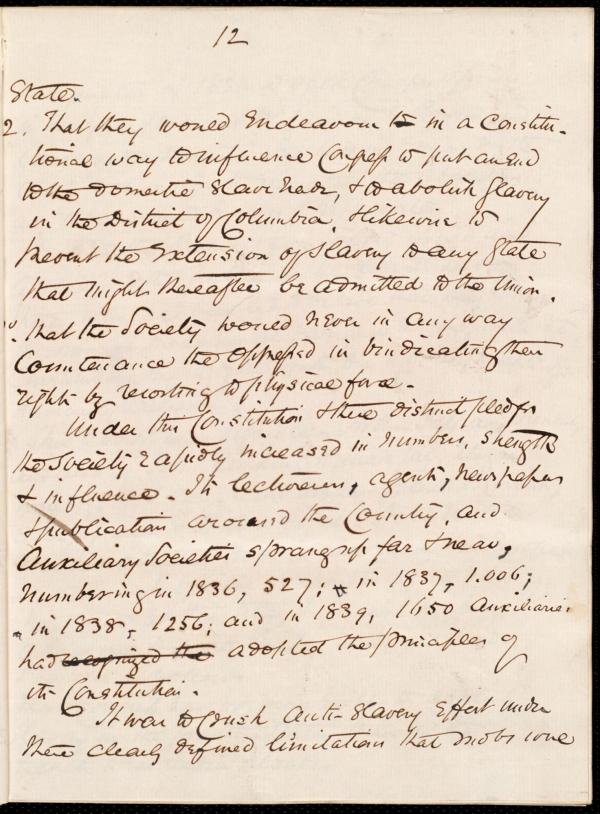 12
State.
2. That they would Endeavour to in a Constitu-
tional way to influence Congress to put an End
to the Domestic Slave trade, & to abolish Slavery
in the District of Columbia, & likewise to
prevent the Extension of Slavery to any State
that might thereafter be admitted to the Union.
That the Society would never in any way
Countenance the Oppressed in vindicating their
rights by resorting to physical force.
Under this Constitution & these distinct pledges
the Society rapidly increased in numbers, strength
& influence. Its lecturers, agents, Newspapers
& publications around the Country, and
Auxiliary Societies sprang up far & near,
numbering in 1836, 527; in 1837, 1.006;
in 1838, 1256; and in 1839, 1650 Auxiliaries
had recognized the adopted the principles of
its Constitution.
It was to Crush Anti-Slavery Effort under
these clearly defined limitations that mobs were